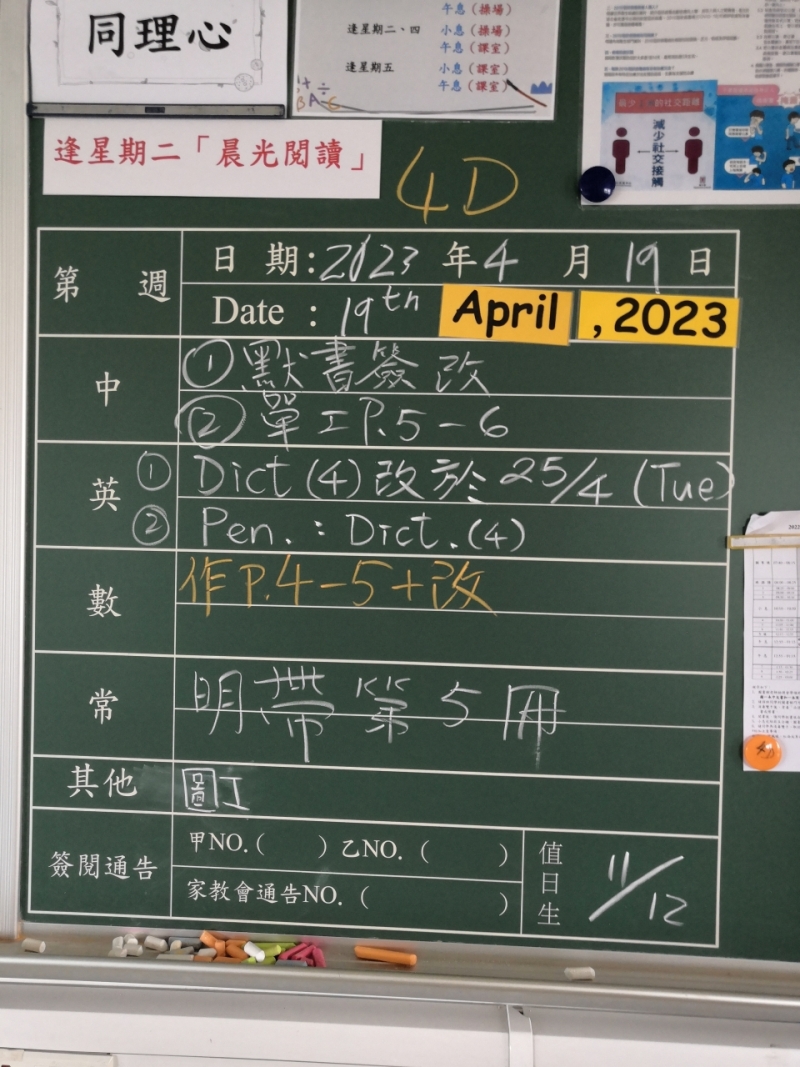 同理心
午息（操場）
逢星期二、四 小息（操場）
午息（課室）
逢星期五 小息（課室）
午息（課室）
逢星期二「晨光閱讀」
減少社交接觸
4D
第 週 日 期:2023 年4 月 19 日
Date : 19th April , 2023
中 ① 默書簽改
② 單工P.5-6
英 ① Dict (4) 改於 25/4 (Tue)
② Pen. : Dict. (4)
數 作P.4-5+改
常 明帶第5冊
其他 圖工
簽閱通告 甲NO.（ ）乙NO.（ ）
家教會通告NO.（ ）
值日生 11/12
4D